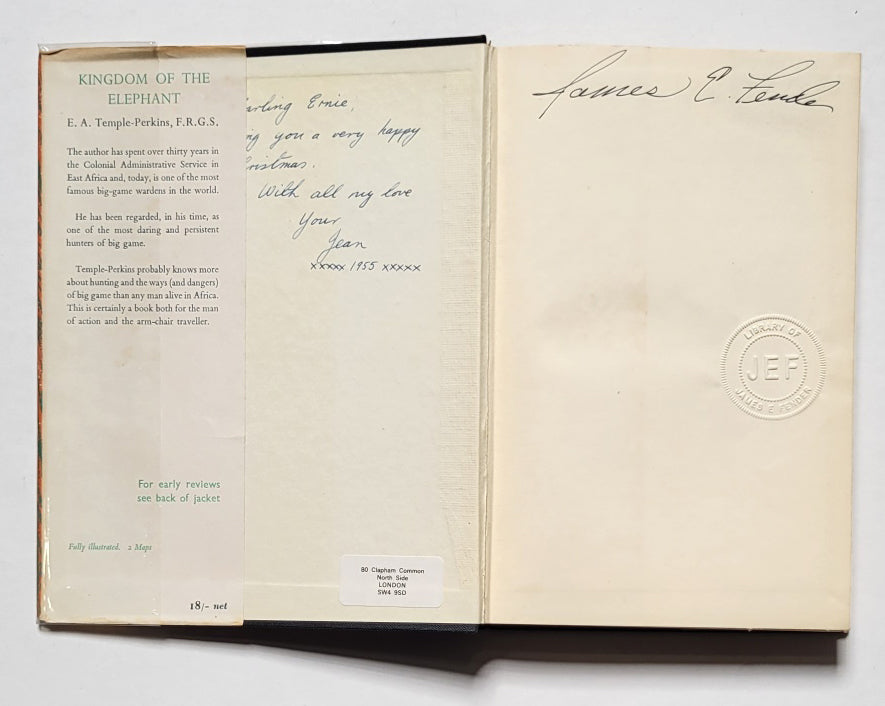 KINGDOM OF THE
ELEPHANT
E. A. Temple-Perkins, F.R.G.S.
The author has spent over thirty years in
the Colonial Administrative Service in
East Africa and, today, is one of the most
famous big-game wardens in the world.
He has been regarded, in his time, as
one of the most daring and persistent
hunters of big game.
Temple-Perkins probably knows more
about hunting and the ways (and dangers)
of big game than any man alive in Africa.
This is certainly a book both for the man
of action and the arm-chair traveller.
For early reviews
see back of jacket
Fully illustrated. 2 Maps
18/- net
arling Ernie,
ng you a very happy
ristmas.
With all my love
Your
Jean
xxxxx 1955 xxxxx
80 Clapham Common
North Side
LONDON
SW4 9SD
James E. Fender
LIBRARY OF
JEF
JAMES E FENDER